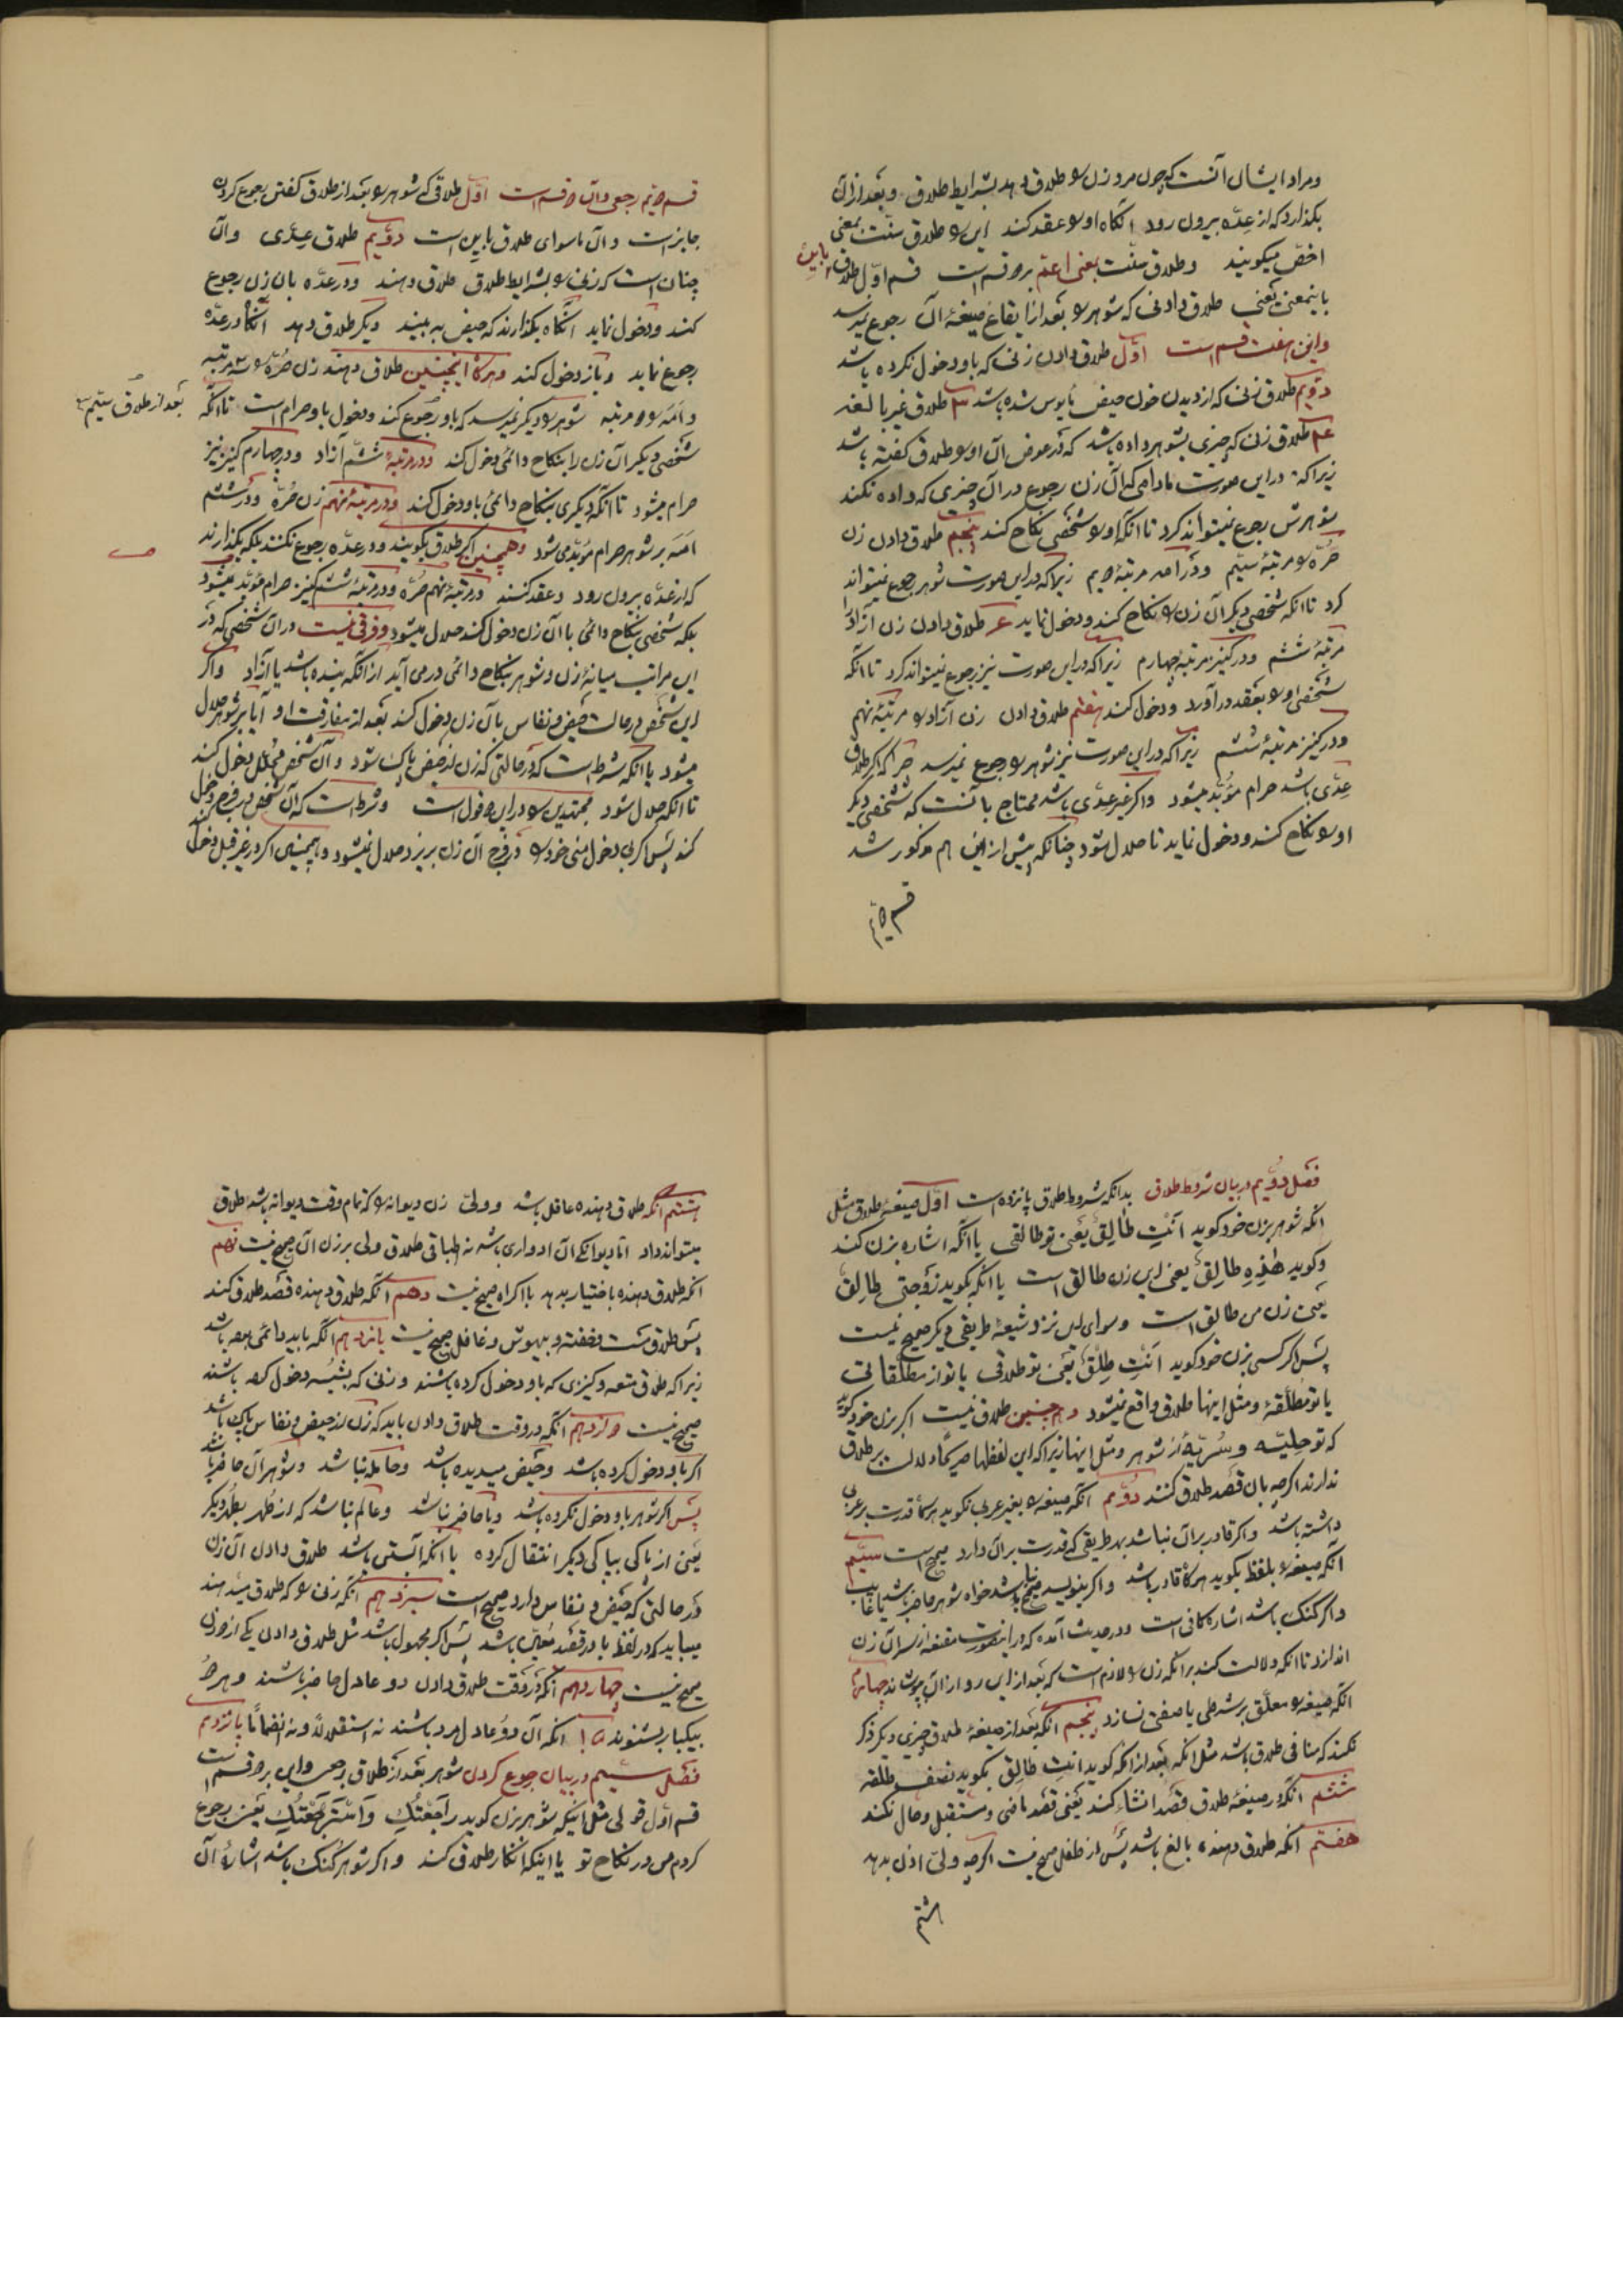 و مراد ایشان آنست که چون مرد زن را طلاق دهد بشرایط طلاق و بعد از آن
بگذارد که از عدّه بیرون رود آنگاه او را عقد کند این را طلاق سنّت بمعنی
اخصّ میگویند و طلاق سنّت بمعنی اعمّ بر دو قسم است قسم اوّل طلاق باین
باینمعنی یعنی طلاق دادنی که شوهر را بعد از ایقاع صیغهٔ آن رجوع نمیرسد
و این هفت قسم است اوّل طلاق دادن زنی که باو دخول نکرده باشد
دویم طلاق زنی که از دیدن خون حیض مأیوس شده باشد ۳ طلاق غیر بالغه
۴ طلاق زنی که چیزی بشوهر داده باشد که در عوض آن او را طلاق گفته باشد
زیرا که در این صورت مادامی که آن زن رجوع در آن چیزی که داده نکند
شوهرش رجوع نمیتواند کرد تا آنکه او را شخصی نکاح کند پنجم طلاق دادن زن
حرّه را مرتبهٔ سیّم و در امه مرتبهٔ دویم زیرا که در این صورت شوهر رجوع نمیتواند
کرد تا آنکه شخصی دیگر آن زن را نکاح کند و دخول نماید ۶ طلاق دادن زن آزاد را
مرتبهٔ ششم و در کنیز مرتبهٔ چهارم زیرا که در این صورت نیز رجوع نمیتواند کرد تا آنکه
شخصی او را بعقد در آورد و دخول کند هفتم طلاق دادن زن آزاد را مرتبهٔ نهم
و در کنیز مرتبهٔ ششم زیرا که در این صورت نیز شوهر را رجوع نمیرسد چرا که اگر طلاق
عدّی باشد حرام مؤبّد میشود و اگر غیر عدّی باشد محتاج بآنست که شخصی دیگر
او را نکاح کند و دخول نماید تا حلال شود چنانکه پیش از این هم مذکور شد
قسم دویم
قسم دویم رجعی و آن دو قسم است اوّل طلاقی که شوهر را بعد از طلاق گفتن رجوع کردن
جایز است و آن ماسوای طلاق باین است دویم طلاق عدّی و آن
چنان است که زنی را بشرایط طلاق طلاق دهند و در عدّه بان زن رجوع
کند و دخول نماید آنگاه بگذارند که حیض به بیند دیگر طلاق دهد آنگاه در عدّه
رجوع نماید و باز دخول کند و هرگاه اینچنین طلاق دهند زن حرّه را سه مرتبه
و امه را دو مرتبه شوهر را دیگر نمیرسد که باو رجوع کند و دخول باو حرام است تا آنکه
بعد از طلاق سیّم
شخصی دیگر آن زن را بنکاح دائمی دخول کند و در مرتبهٔ ششم آزاد و در چهارم کنیز نیز
حرام میشود تا آنکه دیگری بنکاح دائمی باو دخول کند و در مرتبهٔ نهم زن حرّه و در ششم
امه بر شوهر حرام مؤبّدی شود و همچنین اگر طلاق بگویند و در عدّه رجوع نکنند بلکه بگذارند
که از عدّه بیرون رود و عقد کنند در مرتبهٔ نهم حرّه و در مرتبهٔ ششم کنیز حرام مؤبّد نمیشود
بلکه شخصی بنکاح دائمی با آن زن دخول کند حلال میشود و فرقی نیست در آن شخصی که در
این مراتب میانهٔ زن و شوهر بنکاح دائمی در می آید از آنکه بنده باشد یا آزاد و اگر
این شخص در حالت حیض و نفاس با آن زن دخول کند بعد از مفارقت او آیا بر شوهر حلال
میشود یا آنکه شرط است که در حالتی که زن از حیض پاک شود و آن شخص محلّل دخول کند
تا آنکه حلال شود مجتهدین را در این دو قول است و شرط است که آن شخص در فرج دخول
کند پس اگر بی دخول منی خود را در فرج آن زن بریزد حلال نمیشود و همچنین اگر در غیر قبل دخول کند
فصل دویم در بیان شروط طلاق بدانکه شروط طلاق پانزده است اوّل صیغهٔ طلاق مثل
آنکه شوهر بزن خود گوید اَنْتِ طالِقٌ یعنی تو طالقی یا آنکه اشاره بزن کند
و گوید هٰذِهِ طالِقٌ یعنی این زن طالق است یا آنکه بگوید زَوْجَتی طالِقٌ
یعنی زن من طالق است و سوای این نزد شیعه طریقی دیگر صحیح نیست
پس اگر کسی بزن خود گوید اَنْتِ طلقٌ یعنی تو طلاقی یا تو از مطلّقاتی
یا تو مطلّقهٔ و مثل اینها طلاق واقع نمیشود و همچنین طلاق نیست اگر بزن خود گوید
که تو خلیّه و بریّهٔ از شوهر و مثل اینها زیرا که این لفظها صریحاً دلالت بر طلاق
ندارند اگر چه بان قصد طلاق کنند دویم آنکه صیغه را بغیر عربی نگوید هرگاه قدرت بر عربی
داشته باشد و اگر قادر بر آن نباشد بهر طریقی که قدرت بر آن دارد صحیح است سیّم
آنکه صیغه را بلفظ بگوید هرگاه قادر باشد و اگر بنویسد صحیح نباشد خواه شوهر حاضر باشد یا غایب
و اگر گنگ باشد اشاره کافی است و در حدیث آمده که در اینصورت مقنعه از سر آن زن
اندازد تا آنکه دلالت کند بر آنکه زن را لازم است که بعد از این رو از آن بپوشاند چهارم
آنکه صیغه را معلّق بر شرطی یا صفتی نسازد پنجم آنکه بعد از صیغهٔ طلاق چیزی دیگر ذکر
نکند که منافی طلاق باشد مثل آنکه بعد از آنکه گوید انتِ طالِقٌ بگوید نصف طلقه
ششم آنکه در صیغهٔ طلاق قصد انشاء کند یعنی قصد ماضی و مستقبل و حال نکند
هفتم آنکه طلاق دهنده بالغ باشد پس از طفل صحیح نیست اگر چه ولیّ اذن بدهد
هشتم
هشتم آنکه طلاق دهنده عاقل باشد و ولیّ زن دیوانه را که تمام وقت دیوانه باشد طلاق
میتواند داد امّا دیوانگی آن ادواری باشد نه اطباقی طلاق ولی بر زن آن صحیح نیست نهم
آنکه طلاق دهنده باختیار بدهد با اکراه صحیح نیست دهم آنکه طلاق دهنده قصد طلاق کند
پس طلاق مست و خفته و بیهوش و غافل صحیح نیست یازدهم آنکه باید دائمی بعقد باشد
زیرا که طلاق متعه و کنیزی که باو دخول کرده باشند و زنی که بشبهه دخول کرده باشند
صحیح نیست دوازدهم آنکه در وقت طلاق دادن باید که زن از حیض و نفاس پاک باشد
اگر باو دخول کرده باشد و حیض میدیده باشد و حامله نباشد و شوهر آن حاضر باشد
پس اگر شوهر باو دخول نکرده باشد و یا حاضر نباشد و عالم نباشد که از طهر بطهر دیگر
یعنی از پاکی بپاکی دیگر انتقال کرده یا آنکه آبستن باشد طلاق دادن آن زن
در حالتی که حیض و نفاس دارد صحیح است سیزدهم آنکه زنی را که طلاق میدهند
میباید که در لفظ یا در قصد معیّن باشد پس اگر مجهول باشد مثل طلاق دادن یکی از دو زن
صحیح نیست چهاردهم آنکه در وقت طلاق دادن دو عادل حاضر باشند و هر دو
بیکبار بشنوند ۱۵ آنکه آن دو عادل مرد باشند نه استقلالاً و نه انضماماً پانزدهم
فصل سیّم در بیان رجوع کردن شوهر بعد از طلاق رجعی و این بر دو قسم است
قسم اوّل قولی مثل اینکه شوهر بزن گوید راجَعْتُکِ وَ اسْتَرْجَعْتُکِ یعنی رجوع
کردم من در نکاح تو یا اینکه انکار طلاق کند و اگر شوهر گنگ باشد اشارهٔ آن